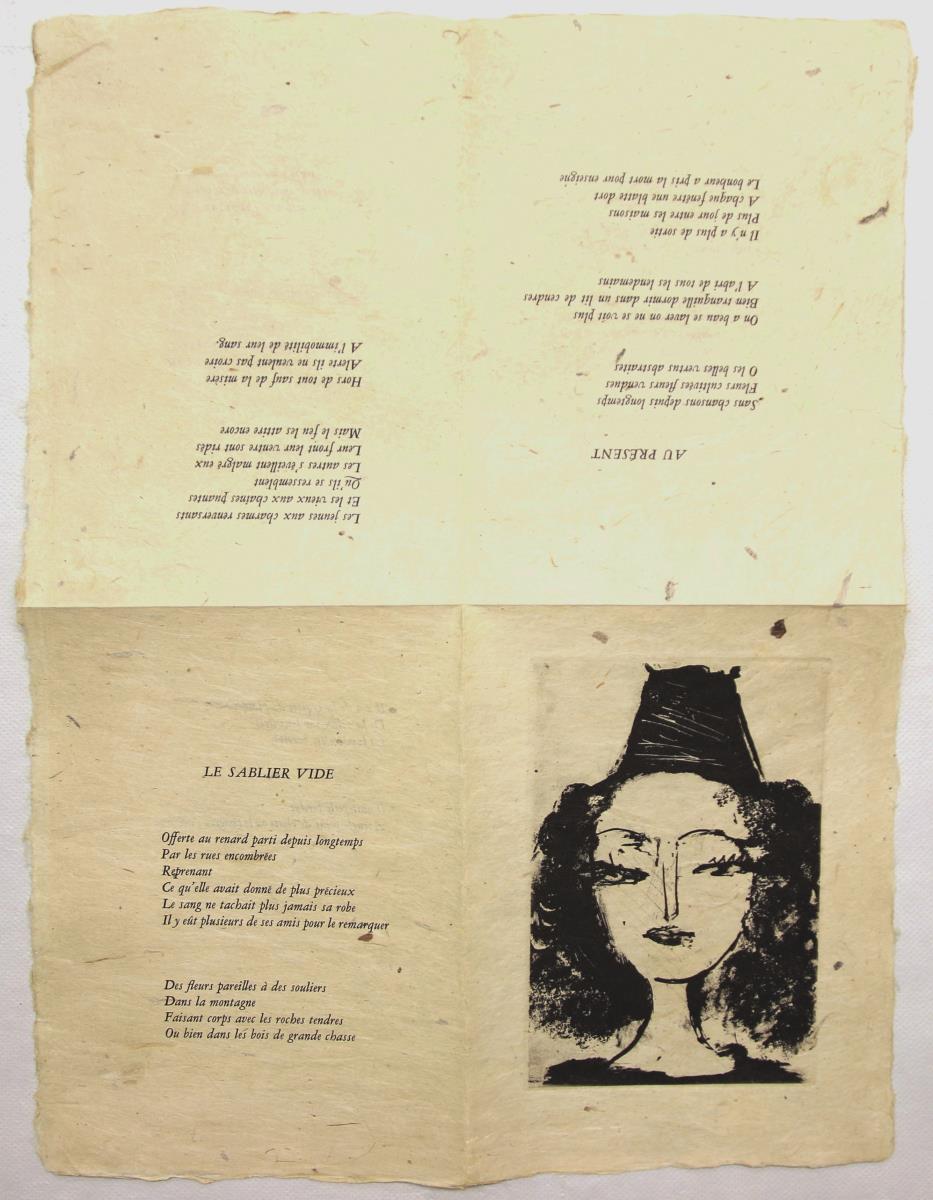 LE SABLIER VIDE
Offerte au renard parti depuis longtemps
Par les rues encombrées
Reprenant
Ce qu'elle avait donné de plus précieux
Le sang ne tachait plus jamais sa robe
Il y eût plusieurs de ses amis pour le remarquer
Des fleurs pareilles à des souliers
Dans la montagne
Faisant corps avec les roches tendres
Ou bien dans les bois de grande chasse
AU PRÉSENT
Sans chansons depuis longtemps
Fleurs cultivées fleurs vendues
O les belles vertus abstraites
On a beau se laver on ne se voit plus
Bien tranquille dormir dans un lit de cendres
A l'abri de tous les lendemains
Il n'y a plus de sortie
Plus de jour entre les maisons
A chaque fenêtre une blatte dort
Le bonheur a pris la mort pour enseigne
Les jeunes aux charmes renversants
Et les vieux aux chaînes puantes
Qu'ils se ressemblent
Les autres s'éveillent malgré eux
Leur front leur ventre sont ridés
Mais le feu les attire encore
Hors de tout sauf de la misère
Alerte ils ne veulent pas croire
A l'immobilité de leur sang.